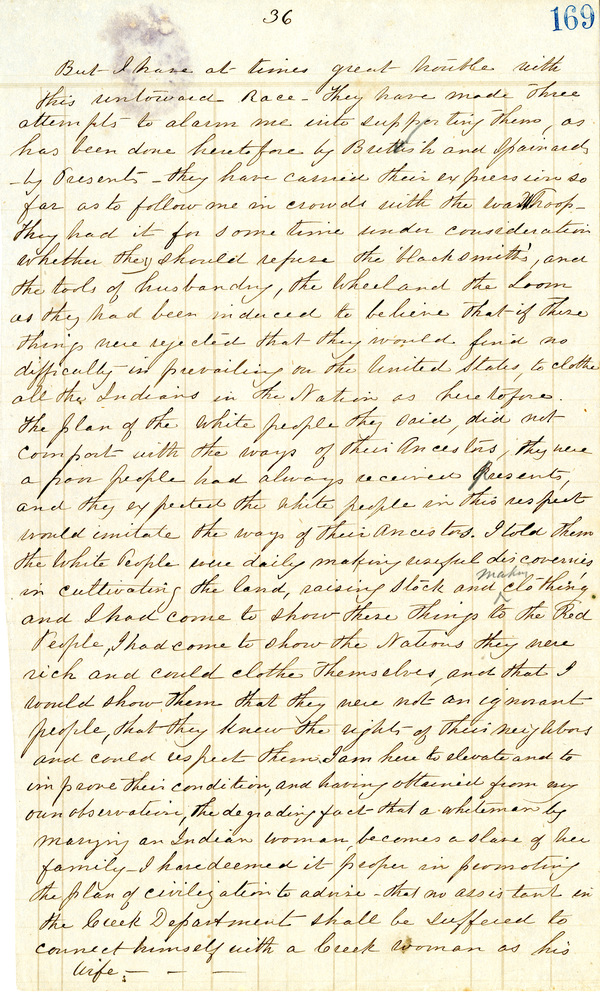 36
169
But I have at times great trouble with
this untoward Race - They have made three
attempts to alarm me into supporting them, as
has been done heretofore by British and Spainards
- by Presents - they have carried their expression so
far as to follow me in crowds with the war Whoop -
They had it for some time under consideration
whether they should refuse the blacksmith's, and
the tools of husbandry, the Wheel and the Loom
as they had been induced to believe that if these
things were rejected that they would find no
difficulty in prevailing on the United States, to clothe
all the Indians in the Nation as heretofore.
The plan of the White people they said, did not
comport with the ways of their Ancestors, they were
a poor people had always received Presents,
and they expected the white people in this respect
would imitate the ways of their Ancestors. I told them
the White People were daily making useful discoveries
in cultivating the land, raising Stock and making clothing
and I had come to show these things to the Red
People, I had come to show the Nations they were
rich and could clothe themselves, and that I
would show them that they were not an ignorant
people, that they knew the rights of their neighbors
and could respect them. I am here to elevate and to
improve their condition, and having obtained from my
own observation, the degrading fact that a whiteman by
marying an Indian woman, becomes a slave of her
family - I have deemed it proper in promoting
the plan of civilization to advise - that no assistant in
the Creek Department shall be suffered to
connect himself with a Creek woman as his
Wife; - - -